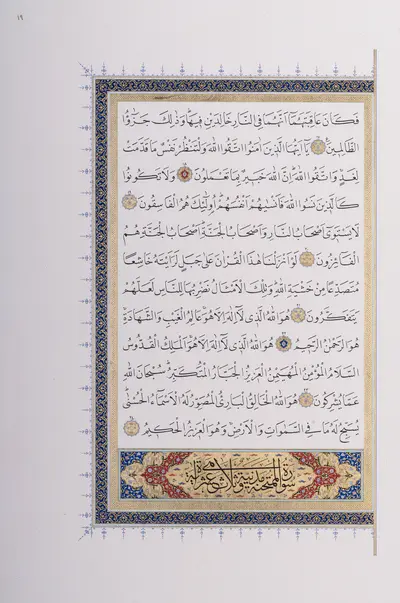 ١٩
فَكَانَ عَاقِبَتَهُمَٓا اَنَّهُمَا فِي النَّارِ خَالِدَيْنِ فِيهَاۜ وَذٰلِكَ جَزٰٓؤُا
الظَّالِمِينَ يَٓا اَيُّهَا الَّذِينَ اٰمَنُوا اتَّقُوا اللّٰهَ وَلْتَنْظُرْ نَفْسٌ مَا قَدَّمَتْ
لِغَدٍۚ وَاتَّقُوا اللّٰهَۜ اِنَّ اللّٰهَ خَبِيرٌ بِمَا تَعْمَلُونَ وَلَا تَكُونُوا
كَالَّذِينَ نَسُوا اللّٰهَ فَاَنْسٰيهُمْ اَنْفُسَهُمْۜ اُو۬لٰٓئِكَ هُمُ الْفَاسِقُونَ
لَا يَسْتَوِٓي اَصْحَابُ النَّارِ وَاَصْحَابُ الْجَنَّةِۜ اَصْحَابُ الْجَنَّةِ هُمُ
الْفَٓائِزُونَ لَوْ اَنْزَلْنَا هٰذَا الْقُرْاٰنَ عَلٰى جَبَلٍ لَرَاَيْتَهُ خَاشِعًا
مُتَصَدِّعًا مِنْ خَشْيَةِ اللّٰهِۜ وَتِلْكَ الْاَمْثَالُ نَضْرِبُهَا لِلنَّاسِ لَعَلَّهُمْ
يَتَفَكَّرُونَ هُوَ اللّٰهُ الَّذِي لَٓا اِلٰهَ اِلَّا هُوَۚ عَالِمُ الْغَيْبِ وَالشَّهَادَةِۚ
هُوَ الرَّحْمٰنُ الرَّحِيمُ هُوَ اللّٰهُ الَّذِي لَٓا اِلٰهَ اِلَّا هُوَۚ اَلْمَلِكُ الْقُدُّوسُ
السَّلَامُ الْمُؤْمِنُ الْمُهَيْمِنُ الْعَزِيزُ الْجَبَّارُ الْمُتَكَبِّرُۜ سُبْحَانَ اللّٰهِ
عَمَّا يُشْرِكُونَ هُوَ اللّٰهُ الْخَالِقُ الْبَارِئُ الْمُصَوِّرُ لَهُ الْاَسْمَٓاءُ الْحُسْنٰىۜ
يُسَبِّحُ لَهُ مَا فِي السَّمٰوَاتِ وَالْاَرْضِۚ وَهُوَ الْعَزِيزُ الْحَكِيمُ
سورة الممتحنة مدنية وهي ثلاث عشرة اية